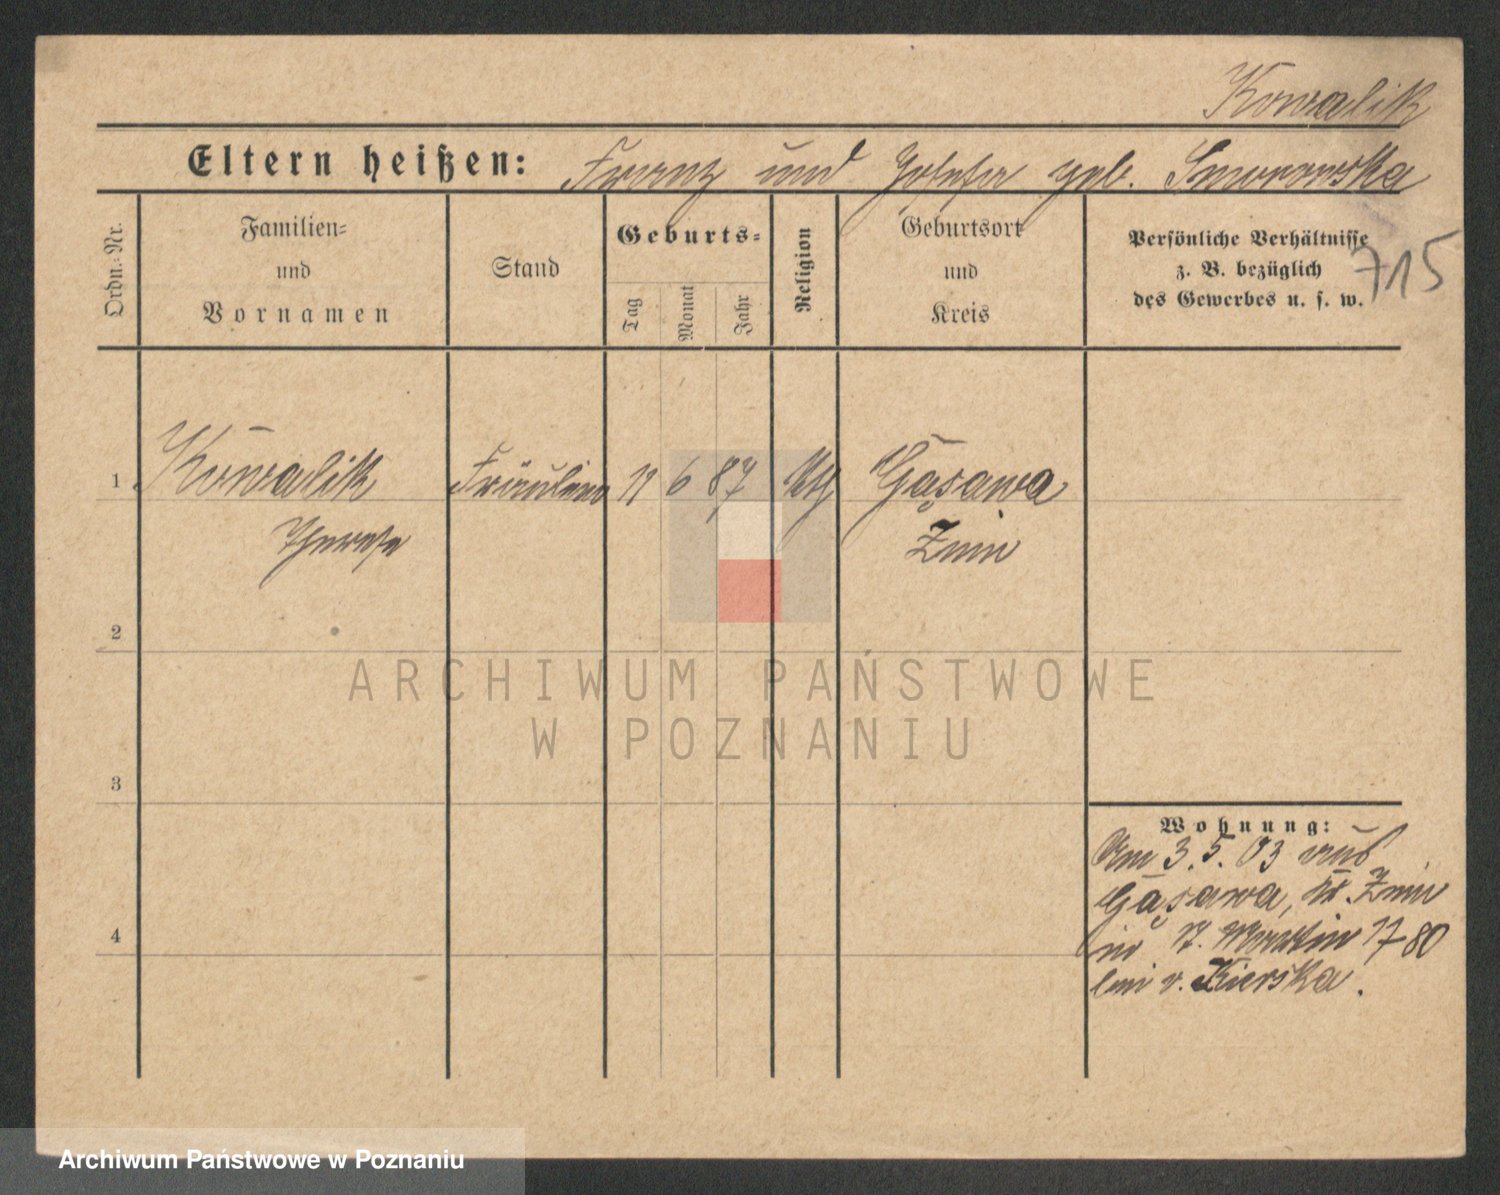 Kowalik
Eltern heißen: Franz und Josefa geb. Smorowska
Ordn.-Nr.
Familien-
und
Vornamen
Stand
Geburts-
Tag
Monat
Jahr
Religion
Geburtsort
und
Kreis
Persönliche Verhältnisse
z. B. bezüglich
des Gewerbes u. s. w.
715
1 Kowalik Fräulein 11 6 87 Kth Gąsawa
Therese Znin
2
3
4
Wohnung:
Am 3.5.03 aus
Gąsawa, Kr. Znin
in St. Martin 1780
bei v. Kierska.
ARCHIWUM PAŃSTWOWE
W POZNANIU
Archiwum Państwowe w Poznaniu